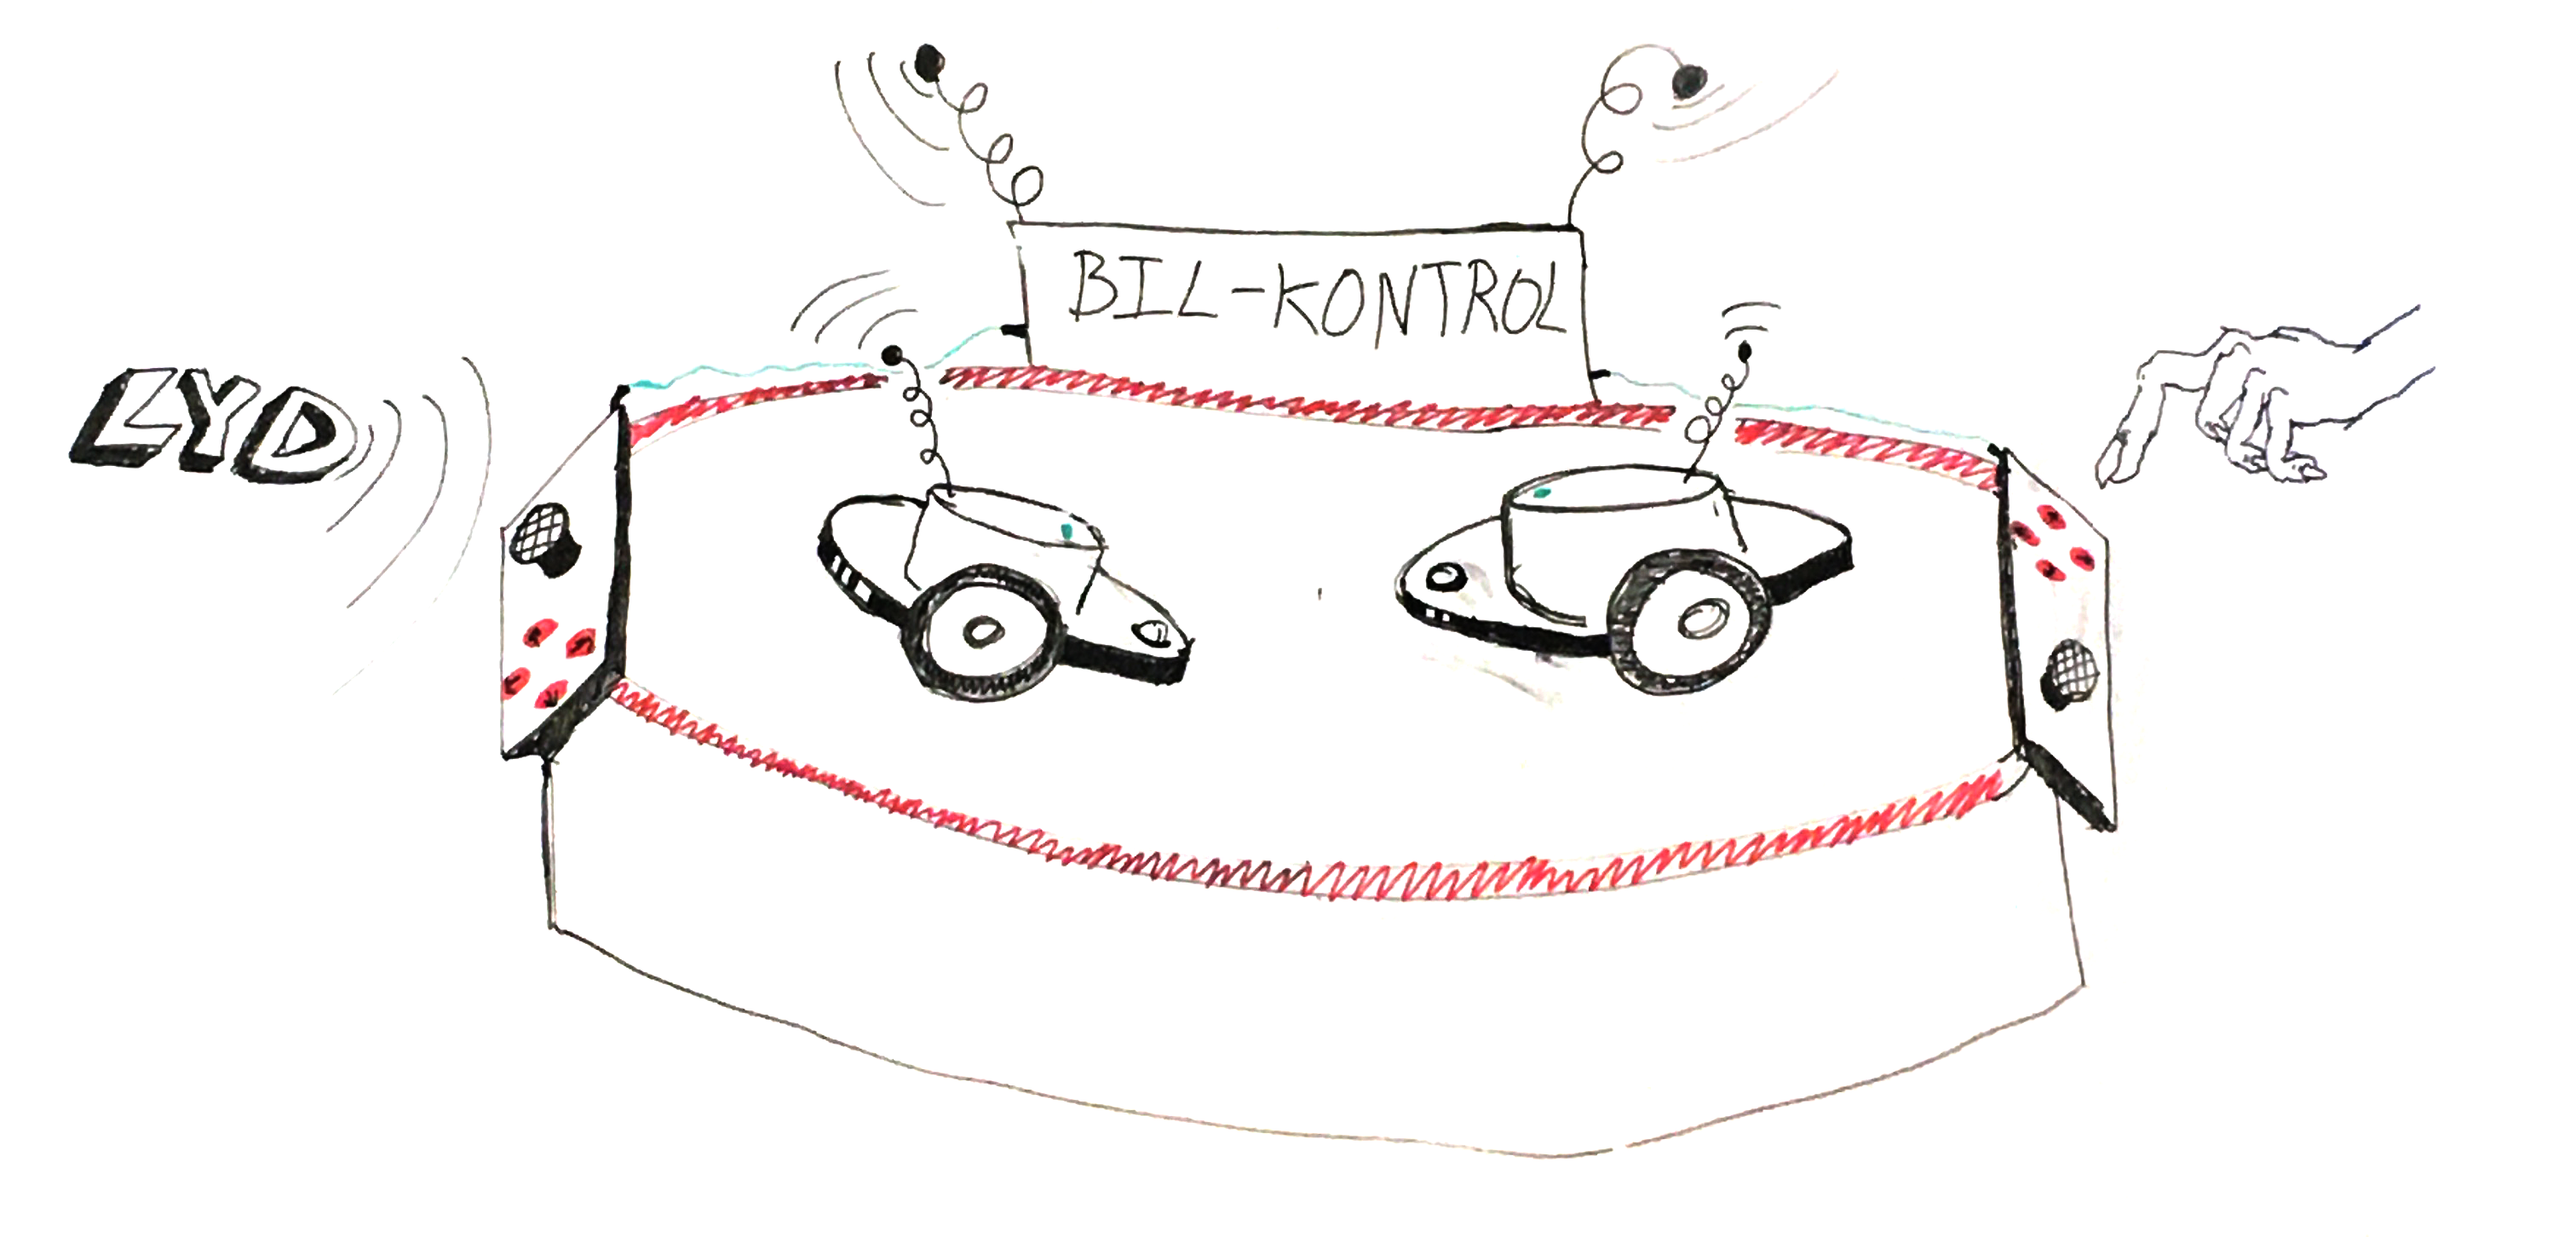 BIL-KONTROL
LYD